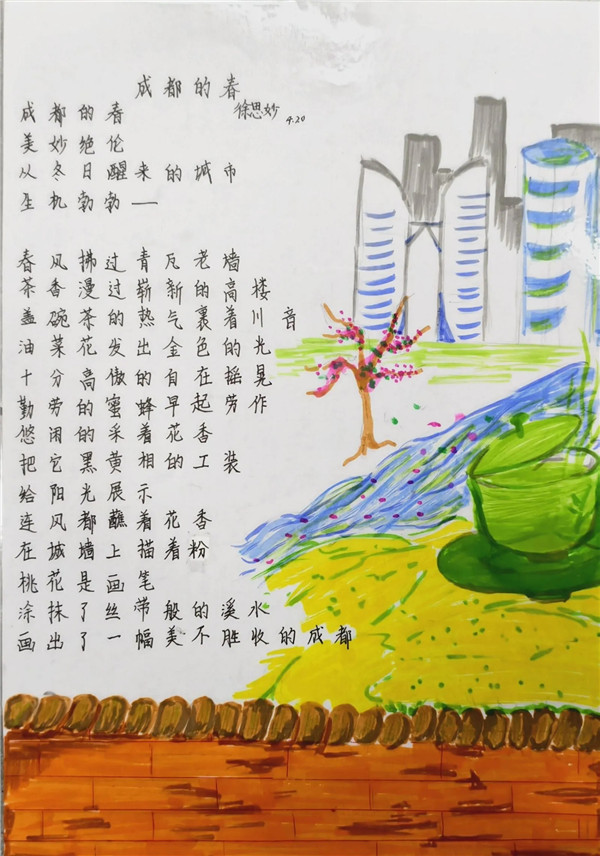 成都的春
徐思妙
4.20
成都的春
美妙绝伦
从冬日醒来的城市
生机勃勃——
春风拂过青瓦老墙
茶香漫过崭新的高楼
盖碗茶的热气裹着川音
油菜花发出金色的光
十分高傲的自在摇晃
勤劳的蜜蜂早起劳作
悠闲的采着花香
把它黑黄相的工装
给阳光展示
连风都蘸着花香
在城墙上描着粉
桃花是画笔
涂抹了丝带般的溪水
画出了一幅美不胜收的成都